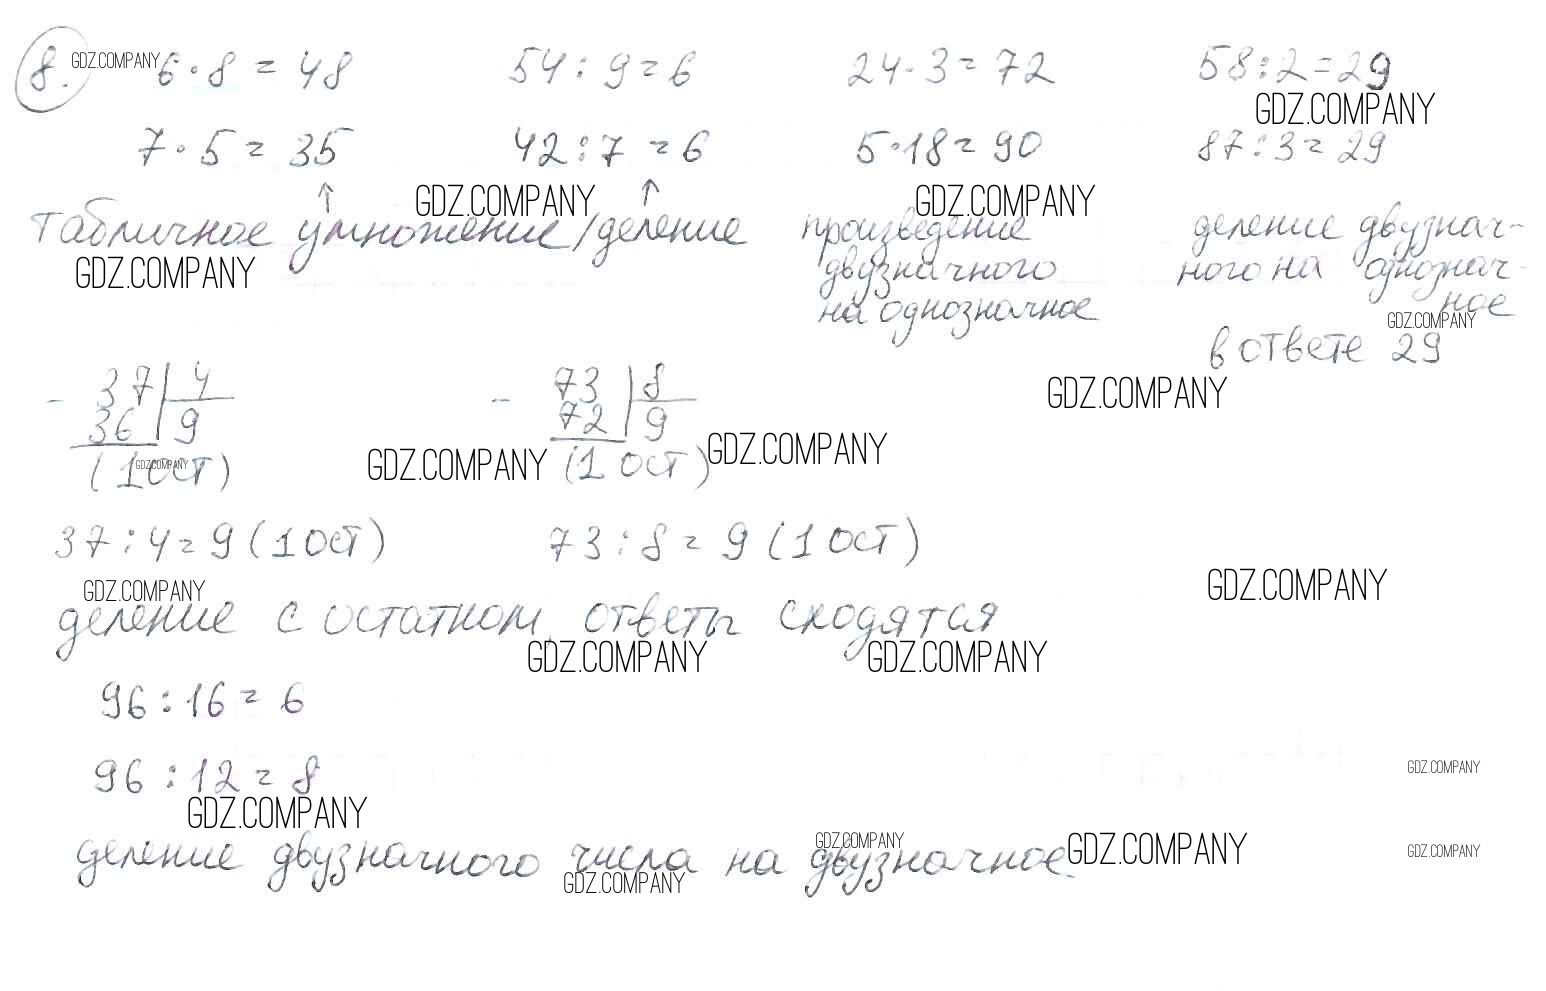 8. GDZ.COMPANY 6·8 = 48 54 : 9 = 6 24·3 = 72 58 : 2 = 29
GDZ.COMPANY
7·5 = 35 42 : 7 = 6 5·18 = 90 87 : 3 = 29
↑ GDZ.COMPANY ↑ GDZ.COMPANY
табличное умножение/деление произведение деление двузнач-
GDZ.COMPANY двузначного ного на однознач-
на однозначное ное
GDZ.COMPANY
в ответе 29
- 37 | 4 - 73 | 8 GDZ.COMPANY
36 | 9 72 | 9
(1 ост) GDZ.COMPANY GDZ.COMPANY (1 ост) GDZ.COMPANY
37 : 4 = 9 (1 ост) 73 : 8 = 9 (1 ост)
GDZ.COMPANY GDZ.COMPANY
деление с остатком, ответы сходятся
GDZ.COMPANY GDZ.COMPANY
96 : 16 = 6
96 : 12 = 8 GDZ.COMPANY
GDZ.COMPANY
GDZ.COMPANY GDZ.COMPANY GDZ.COMPANY
деление двузначного числа на двузначное.
GDZ.COMPANY